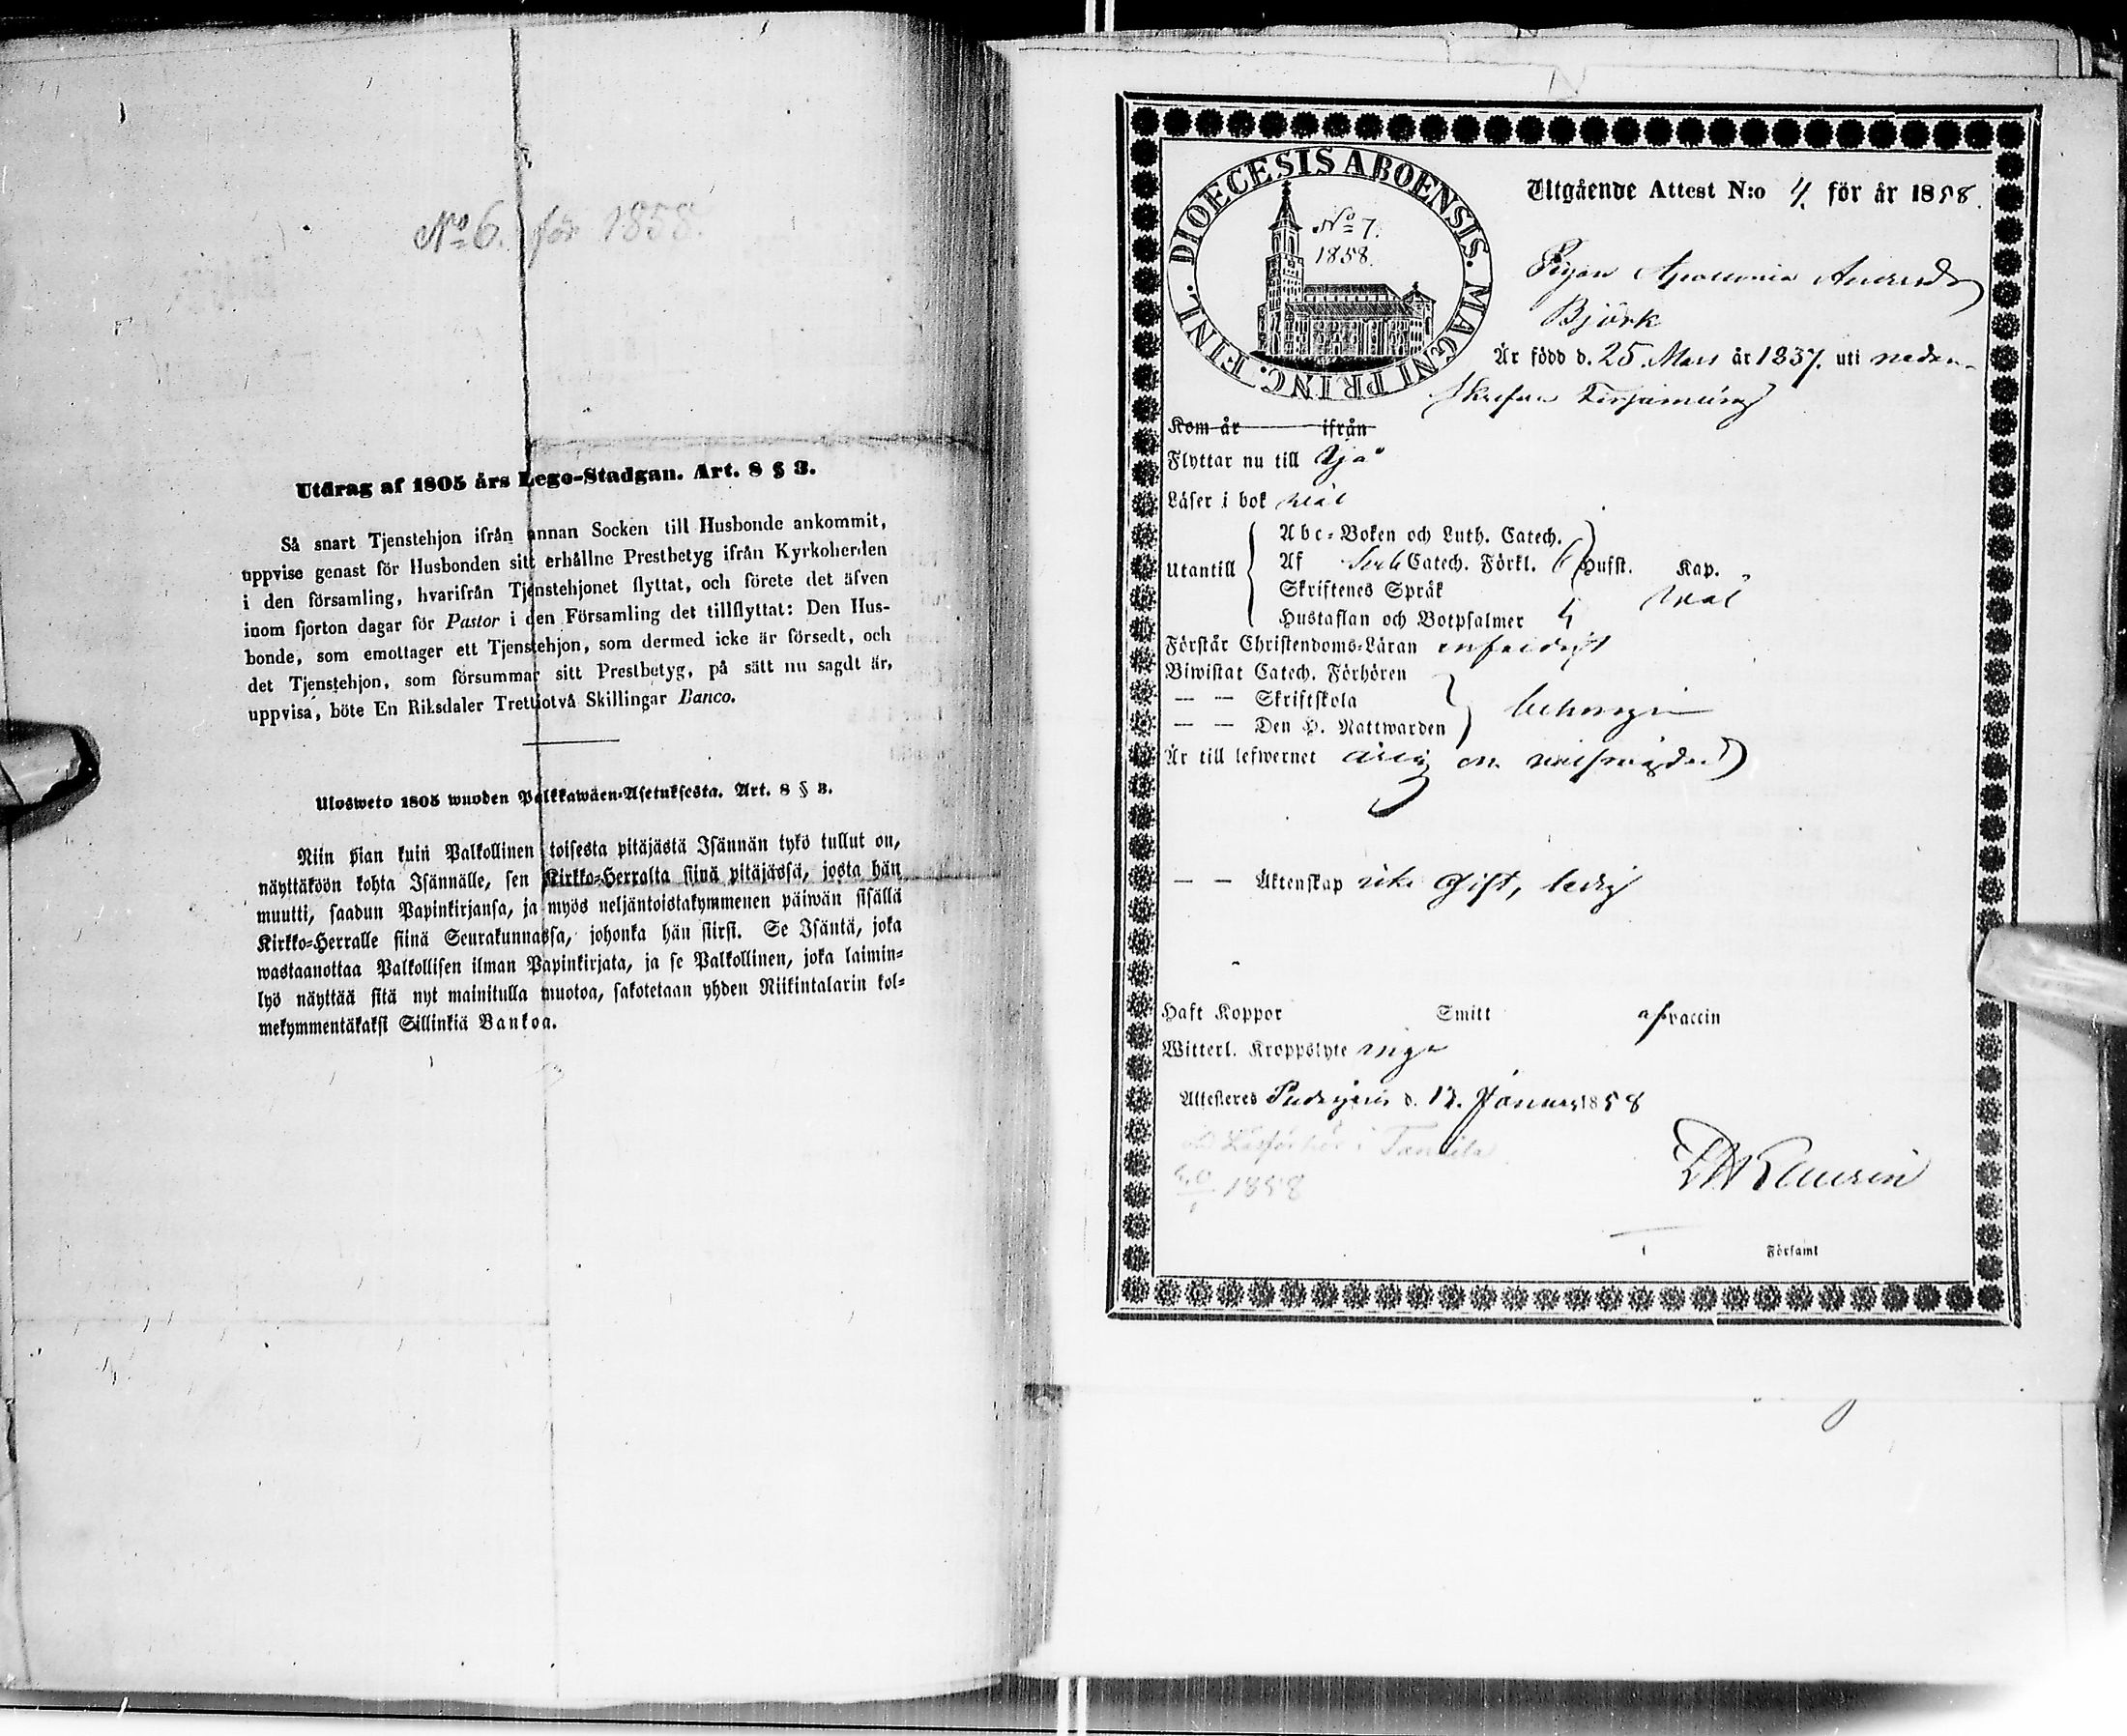 No 6. för 1858.
Utdrag af 1805 års Lego-Stadgan. Art. 8 § 3.
Så snart Tjenstehjon ifrån annan Socken till Husbonde ankommit,
uppvise genast för Husbonden sitt erhållne Prestbetyg ifrån Kyrkoherden
i den församling, hvarifrån Tjenstehjonet flyttat, och förete det äfven
inom fjorton dagar för Pastor i den Församling det tillflyttat: Den Hus-
bonde, som emottager ett Tjenstehjon, som dermed icke är försedt, och
det Tjenstehjon, som försummar sitt Prestbetyg, på sätt nu sagdt är,
uppvisa, böte En Riksdaler Trettiotvå Skillingar Banco.
Ulosweto 1805 wuoden Palkkawäen-Asetuksesta. Art. 8 § 3.
Niin pian kuin Palkollinen toisesta pitäjästä Isännän tykö tullut on,
näyttäköön kohta Isännälle, sen Kirkko-Herralta siinä pitäjässä, josta hän
muutti, saadun Papinkirjansa, ja myös neljäntoistakymmenen päiwän sisällä
Kirkko-Herralle siinä Seurakunnassa, johonka hän siirsi. Se Isäntä, joka
wastaanottaa Palkollisen ilman Papinkirjata, ja se Palkollinen, joka laimin-
lyö näyttää sitä nyt mainitulla muotoa, sakotetaan yhden Riikintalarin kol-
mekymmentäkaksi Sillinkiä Bankoa.
DIOECESIS ABOENSIS. MAGNI PRINC. FINL.
No 7.
1858.
Utgående Attest N:o 4. för år 1858.
Pigan Apolonia Andersdr
Björk
Är född d. 25 Mars år 1837. uti nedan-
skrefne
Kom år ifrån
Flyttar nu till
Läser i bok wäl
Utantill
Abc-Boken och Luth. Catech.
Af Catech. Förkl. 6 Hufst. Kap.
Skriftenes Språk wäl
Hustaflan och Botpsalmer
Förstår Christendoms-Läran enfaldigt
Biwistat Catech. Förhören
— — Skriftskola
— — Den H. Nattwarden
Är till lefwernet ärlig och
— — Äktenskap icke gift, ledig
Haft Koppor Smitt af vaccin
Witterl. Kroppslyte inga
Attesteres d. 12. Januari 1858
1858
Församl